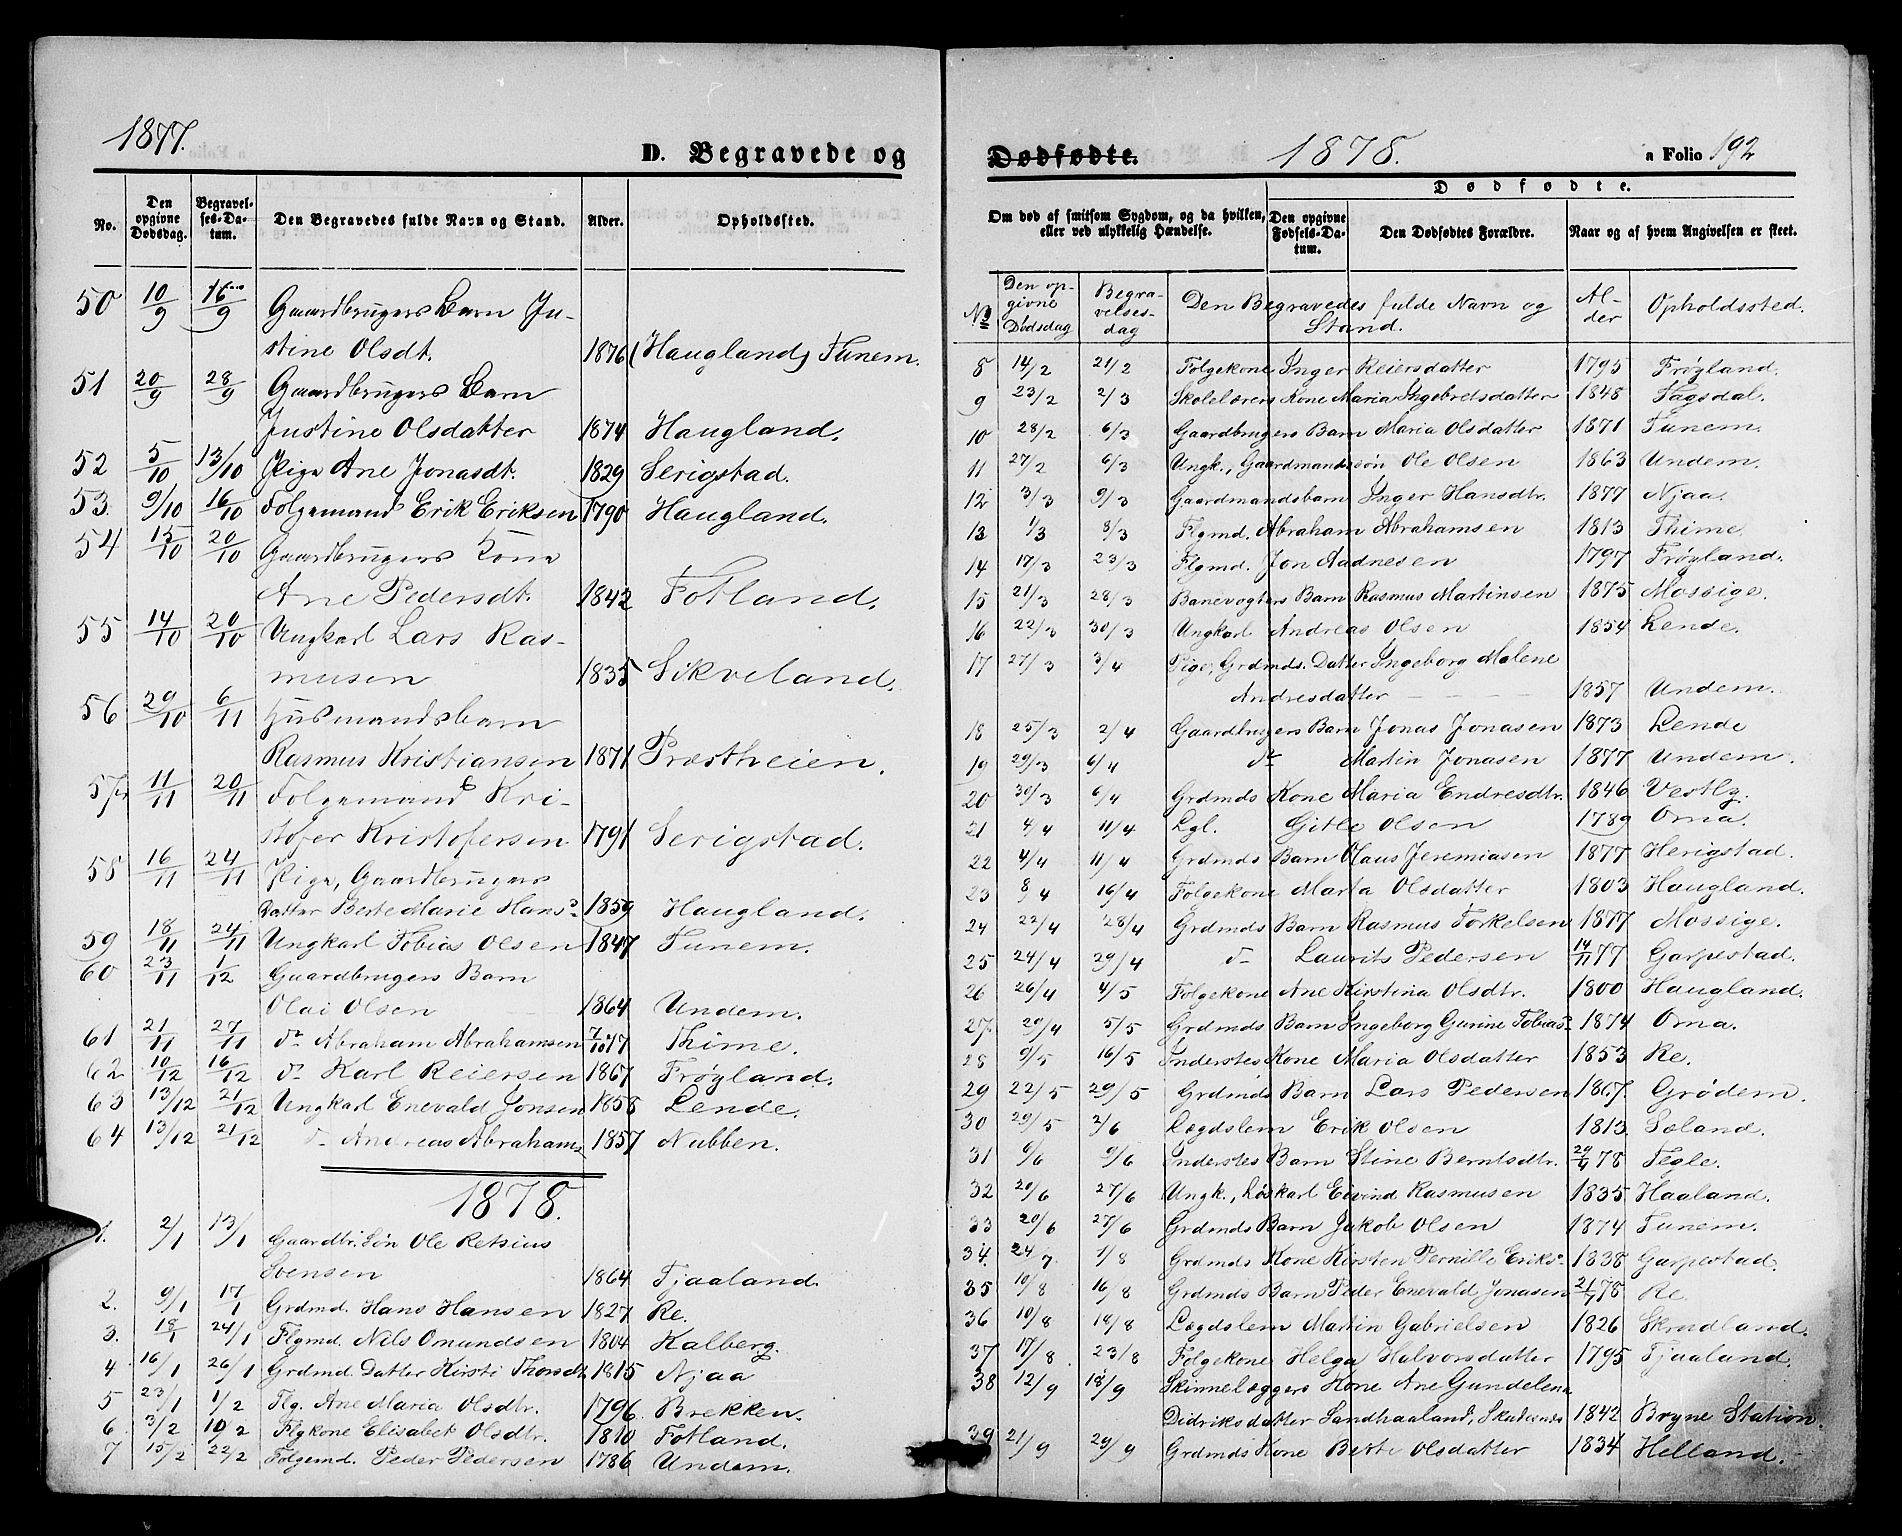 1877.
D. Begravede og
No.
Den opgivne Dødsdag.
Begravelses-Datum.
Den Begravedes fulde Navn og Stand.
Alder.
Opholdssted.
50 10/9 16/9 Gaardbrugers Barn Ju-
stine Olsdt. 1876 (Haugland) Tunem.
51 20/9 28/9 Gaardbrugers Barn
Justine Olsdatter 1874 Haugland.
52 5/10 13/10 Pige Ane Jonasdt. 1829 Serigstad.
53. 9/10 16/10 Folgemand Erik Eriksen 1790 Haugland.
54 15/10 20/10 Gaardbrugers Kone
Ane Pedersdt. 1842 Fotland.
55 14/10 20/10 Ungkarl Lars Ras-
musen 1835 Sikveland.
56 29/10 6/11 Husmandsbarn
Rasmus Kristiansen 1871 Præstheien.
57. 11/11 20/11 Folgemand Kri-
stofer Kristofersen 1791 Serigstad.
58 16/11 24/11 Pige, Gaardbrugers
Datter Berte Marie Hans- 1859 Haugland.
59 18/11 24/11 Ungkarl Tobias Olsen 1847 Tunem.
60 23/11 1/12 Gaardbrugers Barn
Olai Olsen 1864 Undem.
61 21/11 27/11 do Abraham Abrahamsen 7/10 77 Thime.
62 10/12 16/12 do Karl Reiersen 1867 Frøyland.
63 13/12 21/12 Ungkarl Enevald Jonsen 1858 Lende.
64 13/12 21/12 do Andreas Abrahams- 1857 Nubben.
1878.
1. 2/1 13/1 Gaardbr. Søn Ole Retsius
Svensen 1864 Tjaaland.
2. 9/1 17/1 Grdmd. Hans Hansen 1827 Re.
3. 18/1 24/1 Flgmd. Nils Omundsen 1804 Kalberg.
4. 16/1 26/1 Grdmd Datter Kirsti Thorsdt. 1815 Njaa
5 23/1 1/2 Flg. Ane Maria Olsdtr. 1796. Brekken.
6. 3/2 10/2 Flgkone Elisabet Olsdtr. 1810 Fotland.
7 15/2 22/2 Folgemd. Peder Pedersen 1786 Undem.
Dødfødte.
1878.
a Folio 192
Om død af smitsom Sygdom, og da hvilken, eller ved ulykkelig Hændelse.
Dødfødte.
Den opgivne Fødsels-Datum.
Den Dødfødtes Forældre.
Naar og af hvem Angivelsen er skeet.
No
Den opgivne Dødsdag
Begravelsesdag
Den Begravedes fulde Navn og Stand.
Alder
Opholdssted.
8 14/2 21/2 Folgekone Inger Reiersdatter 1795 Frøyland.
9 23/2 2/3 Skolelærers Kone Maria Ingebretsdatter 1848 Fagsdal.
10 28/2 6/3 Gaardbrugers Barn Maria Olsdatter 1871 Tunem.
11 27/2 6/3 Ungk., Gaardmandssøn Ole Olsen 1863 Undem.
12 3/3 9/3 Gaardmandsbarn Inger Hansdtr. 1877 Njaa.
13 1/3 8/3 Flgmd. Abraham Abrahamsen 1813 Thime.
14 17/3 23/3 Flgmd. Jon Aadnesen 1797 Frøyland.
15 21/3 28/3 Banevogters Barn Rasmus Martinsen 1875 Mossige.
16 22/3 30/3 Ungkarl Andreas Olsen 1854 Lende.
17 27/3 3/4 Pige, Grdmds. Datter Ingeborg Malene
Andresdatter 1857 Undem.
18 25/3 2/4 Gaardbrugers Barn Jonas Jonasen 1873 Lende
19 29/3 6/4 do Martin Jonasen 1877 Undem.
20 30/3 6/4 Grdmds Kone Maria Endresdtr. 1846 Vestly.
21 4/4 11/4 Lgl. Gitle Olsen 1789 Oma.
22 4/4 11/4 Grdmds Barn Olaus Jeremiasen 1877 Herigstad.
23 8/4 16/4 Folgekone Marta Olsdatter 1803 Haugland.
24 22/4 28/4 Grdmds Barn Rasmus Torkelsen 1877 Mossige.
25 24/4 29/4 do Laurits Pedersen 14/11 77 Garpestad.
26 26/4 4/5 Folgekone Ane Kirstina Olsdtr. 1800 Haugland.
27. 29/4 5/5 Grdmds Barn Ingeborg Gurine Tobias- 1874 Oma.
28 9/5 16/5 Inderstes Kone Maria Olsdatter 1853 Re.
29 22/5 29/5 Grdmds Barn Lars Pedersen 1867. Grødem.
30 29/5 2/6 Lægdslem Erik Olsen 1813 Søland.
31 6/6 9/6 Inderstes Barn Stine Berntsdtr. 78 Tegle.
32 20/6 27/6 Ungk., Løskarl Eivind Rasmusen 1835 Haaland.
33 20/6 27/6 Grdmds Barn Jakob Olsen 1874 Tunem.
34. 24/7 1/8 Grdmds Kone Kirsten Pernille Eriks- 1838 Garpestad.
35 10/8 16/8 Grdmds Barn Peder Enevald Jonasen 78 Re.
36 10/8 18/8 Lægdslem Martin Gabrielsen 1826 Skrudland.
37 17/8 23/8 Folgekone Helga Halvorsdatter 1795 Tjaaland.
38 12/9 18/9 Skinnelæggers Kone Ane Gundelena
Didriksdatter Sandhaaland, Skudesnes 1842 Bryne Station.
39 21/9 29/9 Grdmds Kone Berte Olsdatter 1834 Helland.